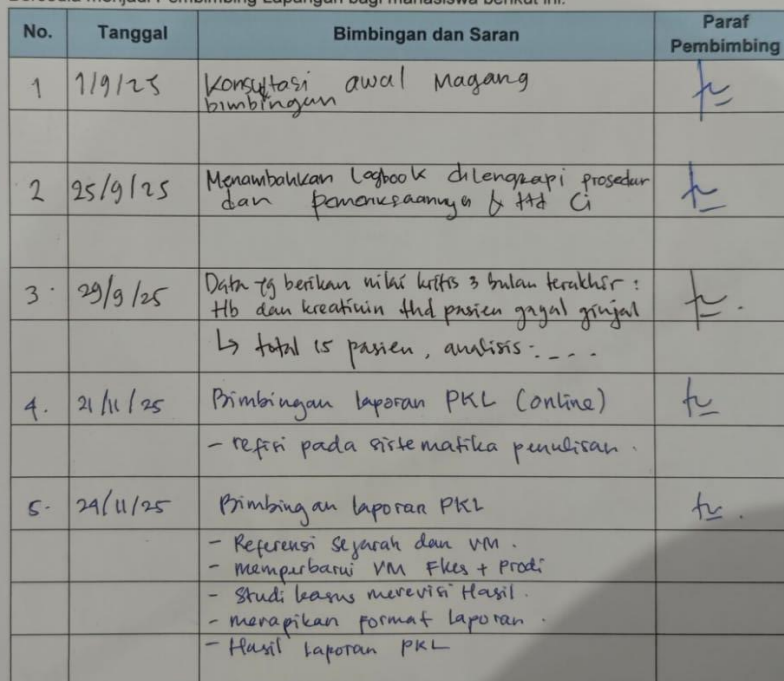 No. Tanggal Bimbingan dan Saran Paraf Pembimbing
1 1/9/25 Konsultasi awal Magang
bimbingan
2 25/9/25 Menambahkan Logbook dilengkapi prosedur
dan pemeriksaannya & ttd Ci
3. 29/9/25 Data yg berikan nilai kritis 3 bulan terakhir :
Hb dan kreatinin thd pasien gagal ginjal
↳ total 15 pasien, analisis : ....
4. 21/11/25 Bimbingan laporan PKL (online)
- refisi pada sistematika penulisan.
5. 24/11/25 Bimbingan laporan PKL
- Referensi sejarah dan VM.
- memperbarui VM Fkes + Prodi
- Studi kasus merevisi Hasil.
- merapikan format laporan.
- Hasil Laporan PKL